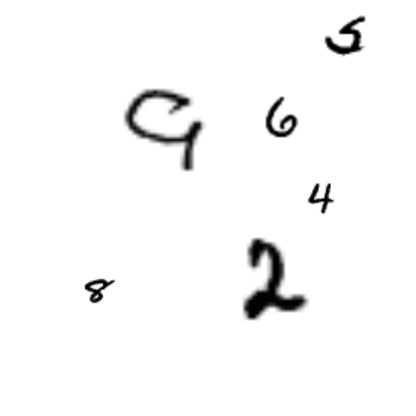 5
9 6
4
8 2